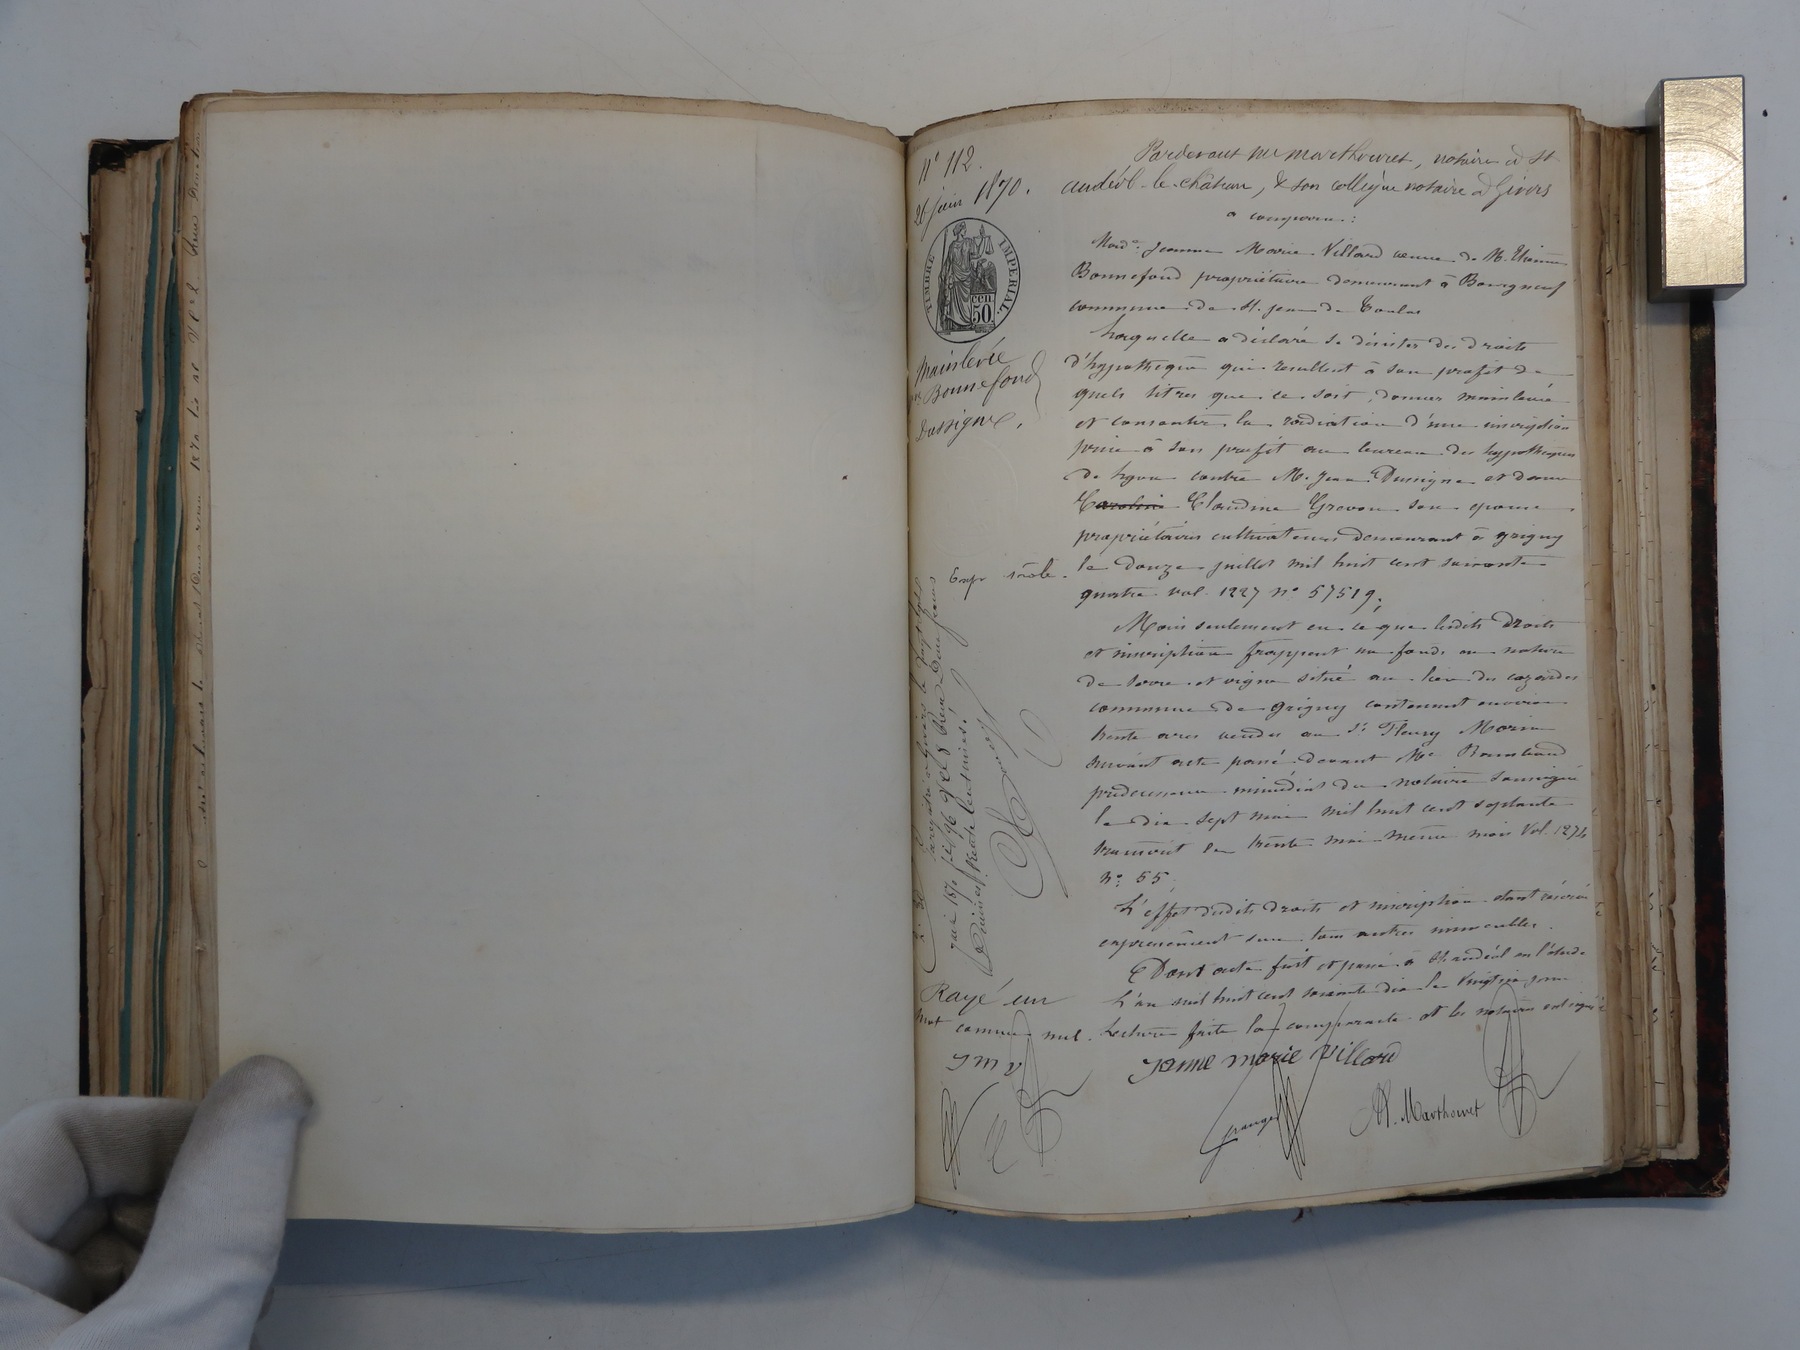 N° 112.
26 juin 1870.
TIMBRE IMPERIAL.
50 cen
Mainlevée
Bonnefond
Dussigne.
Exp rôle.
Rayé un
mot comme nul.
J m V
Pardevant Me Marthouret, notaire à St
andéol-le-château, & son collègue notaire à Givors
a comparu :
Made Jeanne Marie Villard veuve de M. Etienne
Bonnefond propriétaire demeurant à Bourgneuf
commune de St. Jean de Toulas
Laquelle a déclaré se désister des droits
d'hypothèque qui résultent à son profit de
quels titres que ce soit, donner mainlevée
et consentir la radiation d'une inscription
prise à son profit au bureau des hypothèques
de Lyon contre M. Jean Dussigne et dame
Caroline Claudine Grevon son épouse
propriétaires cultivateurs demeurant à Grigny
le douze juillet mil huit cent soixante
quatre vol. 1227 n° 57519;
Mais seulement en ce que lesdits droits
et inscription frappent un fonds en nature
de terre et vigne situé au lieu des
commune de Grigny contenant environ
trente ares vendus au Sr Fleury Morin
suivant acte passé devant Me
prédécesseur immédiat du notaire soussigné
le dix sept mai mil huit cent septante
transcrit le trente mai même mois Vol. 1274
N° 55;
L'effet desdits droits et inscription étant réservé
expressément sur tous autres immeubles.
Dont acte fait et passé à St andéol en l'étude
L'an mil huit cent soixante dix le vingt six juin
Lecture faite la comparante et les notaires ont signé
Janne marie Villard
A. Marthouret